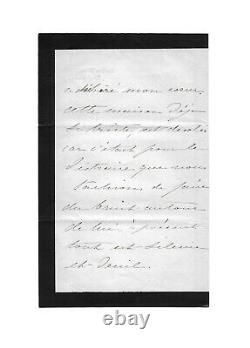 a déchiré mon cœur
cette maison déjà
si triste, est
car c'était pour le
distraire que nous
de faire
du bruit autour
de lui, à présent
tout est silence
et deuil.